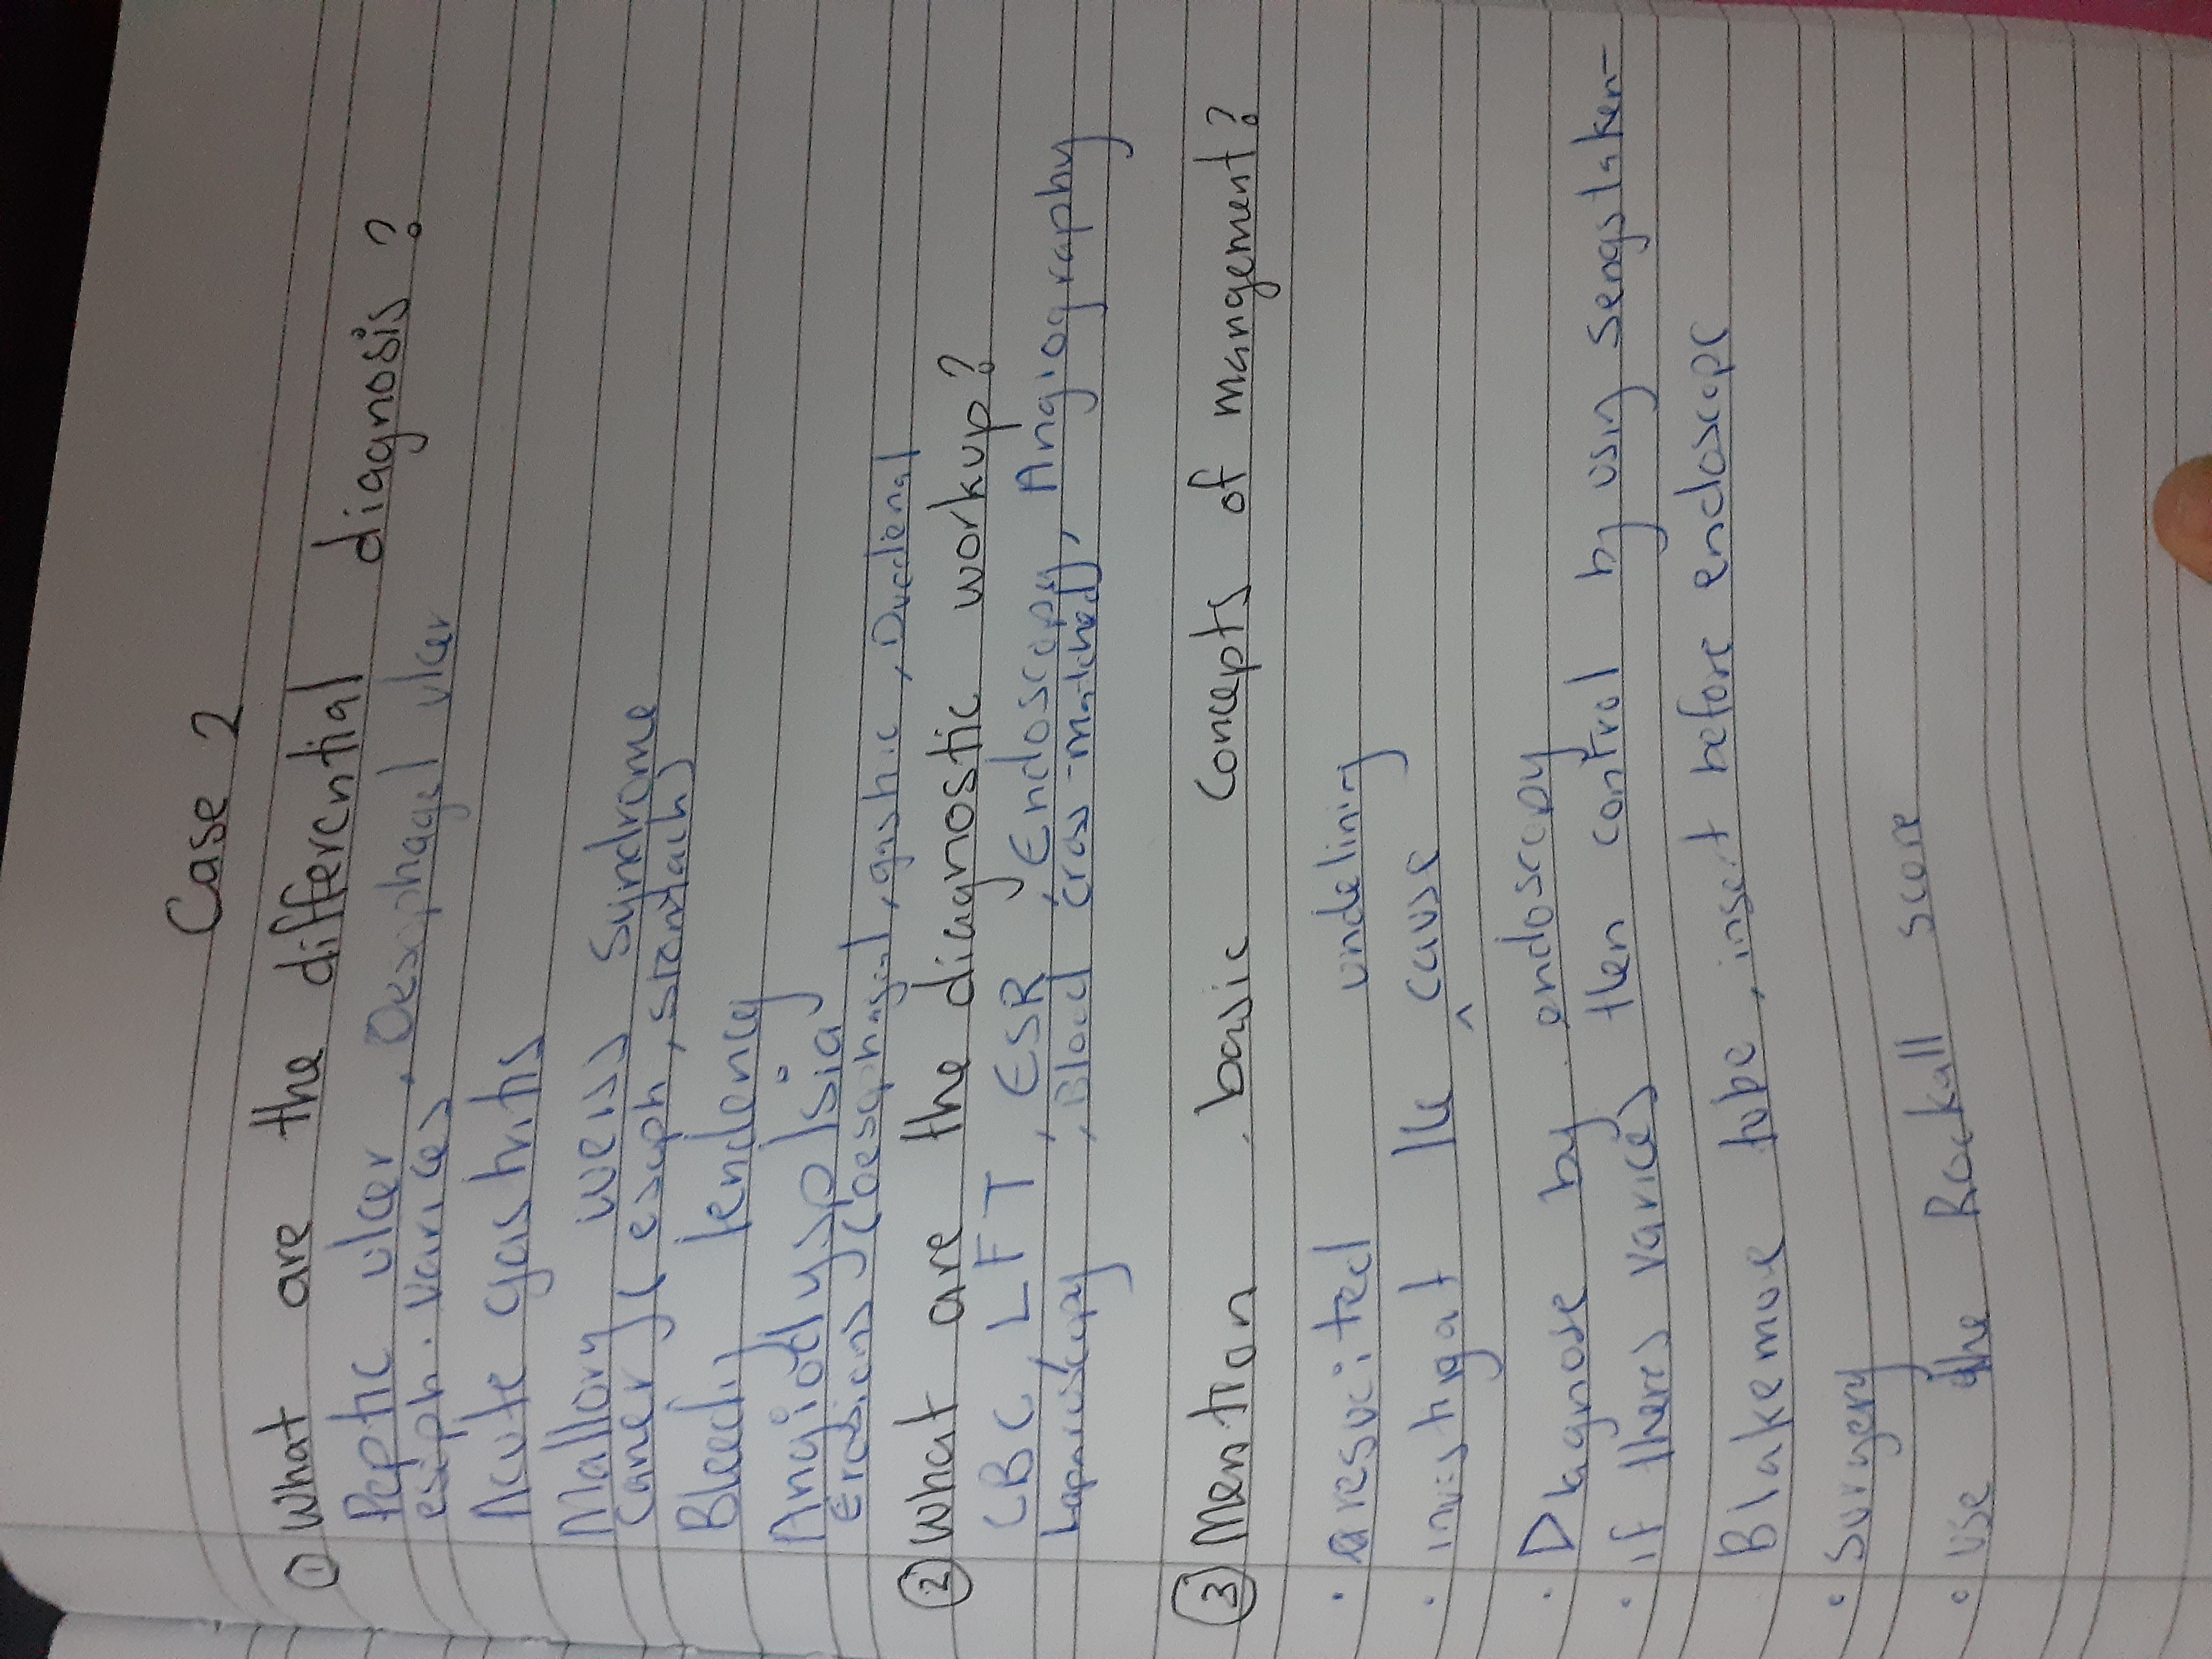 Case 2
① What are the differential diagnosis?
Peptic ulcer, Oesophagal ulcer
esoph. varices
Acute gastritis
Mallory weiss syndrome
Caner (esoph, stomach)
Bleedig tendency
Angiodysplsia
Erosions (oesophagial, gastric, Duedenal
② What are the diagnostic workup?
CBC LFT, ESR, Endoscopy, Angiography
Laproscopy, Blood (cross-matched)
③ Mention basic concepts of mangement?
• resucited
undelining
• investigat the ^ cause
• Diagnose by endoscopy
• if theres varices then control by using sengstaken-
Blakemore tube, insert before endoscope
• Surugery
• use the Rockall score